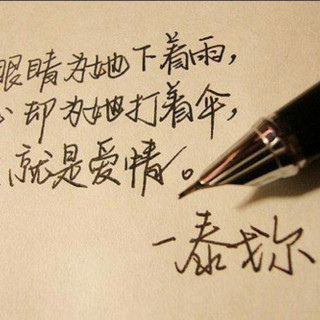 眼睛为她下着雨,
心却为她打着伞,
就是爱情。
一泰戈尔